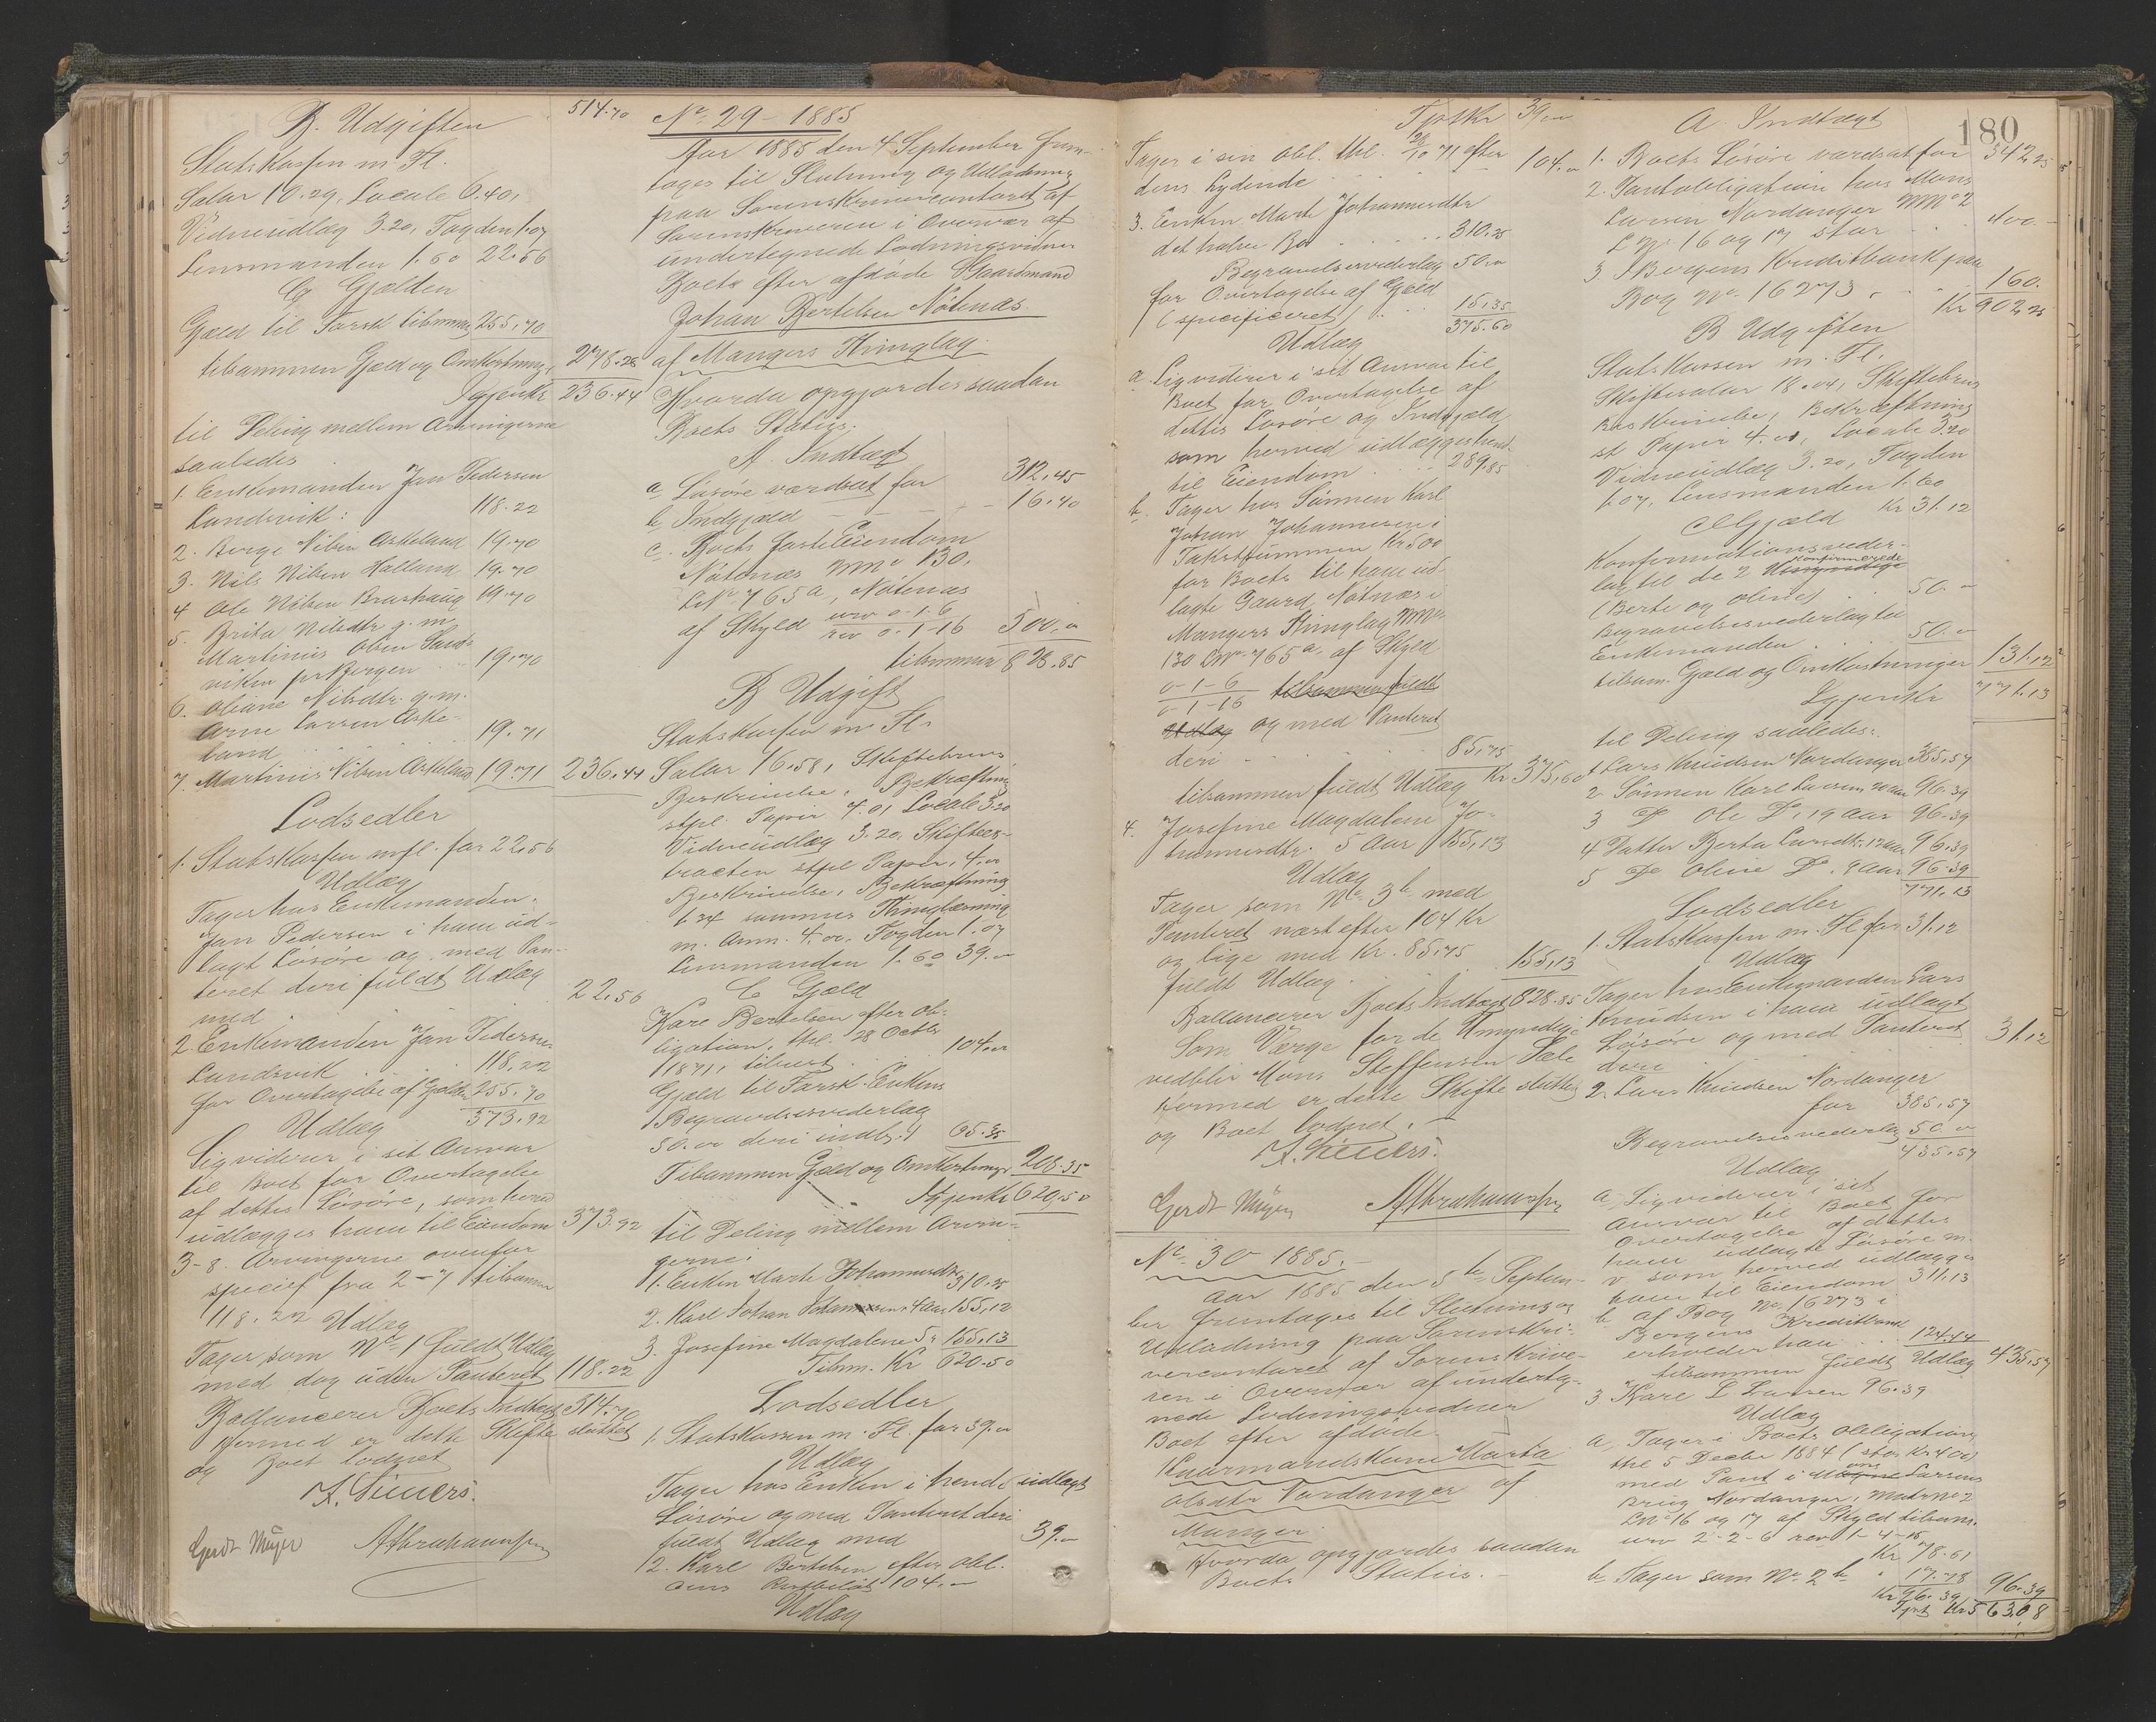 B. Udgiften 514.70
Statskassen m. Fl.
Salar 10.29, Locale 6.40,
Vidneudlæg 3.20, Fogden 1.07
Lensmanden 1.60 22.56
C. Gjælden
Gjæld til Forsk. tilsammen 255.70
tilsammen Gjæld og Omkostninger 278.26
Igjen Kr 236.44
til Deling mellem Arvingerne
saaledes
1. Enkemanden Jan Pedersen
Landsvik: 118.22
2. Borge Nilsen Askeland 19.70
3. Nils Nilsen Halland 19.70
4 Ole Nilsen 19.70
5. Brita Nilsdtr g. m.
Martinus Olsen Sand-
viken pr Bergen 19.70
6. Oliane Nilsdtr. g. m.
Arne Larsen Aske-
land 19.71
7. Martinus Nilsen Askeland 19.71 236.44
Lodsedler
1. Statskassen mfl. for 22.56
Udlæg
Tager hos Enkemanden
Jan Pedersen i ham ud-
lagt Løsøre og med Pan-
teret deri fuldt Udlæg
med 22.56
2. Enkemanden Jan Pedersen
Landsvik 118.22
for Overtagelse af Gjælden 255.70
373.92
Udlæg
Ligviderer i sit Ansvar
til Boet for Overtagelse
af dettes Løsøre, som herved
udlægges ham til Eiendom 373.92
3-8. Arvingerne ovenfor
specif fra 2-7 tilsammen
118.22 Udlæg
Tager som No 1 fuldt Udlæg
med dog uden Panteret 118.22
Ballancerer Boets Indtægt 514.70
Hermed er dette Skifte sluttet
og Boet lodnet
A. Sciuers.
Gerdt Meyer AAbrahamsen
No. 29 - 1885
Aar 1885 den 4 September frem-
tages til Slutning og Udlodning
paa Sorenskrivercontoret af
Sorenskriveren i Overvær af
undertegnede Lodningsvidner
Boet efter afdøde Gaardmand
Johan Bertelsen Nøtenæs
af Mangers Thinglag.
Hvorda opgjordes saadan
Boets Status.
A. Indtægt
a Løsøre værdsat for 312.45
b. Indgjæld 16.40
c. Boets faste Eiendom
Nøtenæs MNo 130.
LNo 765a, Nøtenæs
af Skyld urv 0-1-6
rev 0-1-16 500.00
tilsammen 828.85
B Udgift
Statskassen m. Fl.
Salar 16.58, Skiftebrevs
Beskrivelse, Bekræftning
stpl. Papir 4.01 Locale 3.20
Vidneudlæg 3.20, Skifteex-
tracten stpl Papir, 4.00
Beskrivelse, Bekræftning
1.34 sammes Thinglæsning
m. Ann. 4.00, Fogden 1.07
Lensmanden 1.60 39.00
C Gjæld
Kare Bertelsen efter ob-
ligation, thl. 28 Octbr
1871, tilbrest 104.00
Gjæld til Forsk. Enkens
Begravelsesvederlag
50.00 deri indb. 65.35
Tilsammen Gjæld og Omkostninger 208.35
Igjen Kr 620.50
til Deling mellem Arvin-
gerne:
1. Enken Marte Johannesdtr 310.25
2. Karl Johan Johannessen 4 Aar 155.12
3. Josefine Magdalene 5 " 155.13
Tilsm. Kr 620.50
Lodsedler
1. Statskassen m. Fl. for 39.00
Udlæg
Tager hos Enken i hende udlagt
Løsøre og med Panteret deri
fuldt Udlæg med 39.00
2. Karl Bertelsen efter obl.
104.00
Udlæg
Tpt Kr 39.00
Tager i sin obl. thl. 28/10 71 efter
dens Lydende 104.00
3. Enken Marte Johannesdtr
det halve Bo 310.25
Begravelsesvederlag 50.00
for Overtagelse af Gjæld
(specificeret) 15.35
375.60
Udlæg
a. Ligviderer i sit Ansvar til
Boet for Overtagelse af
dettes Løsøre og Indgjæld
som herved udlægges hende
til Eiendom 289.85
b. Tager hos Sønnen Karl
Johan Johannessen i
Takstsummen Kr 500
for Boets til ham ud-
lagte Gaard Nøtnæs i
Mangers Thinglag MNo.
130 LNo. 765a. af Skyld
0-1-6
0-1-16 tilsammen fuldt
Udlæg og med Panteret
deri 85.75
tilsammen fuldt Udlæg Kr 375.60
4. Josefine Magdalene Jo-
hannesdtr. 5 Aar 155.13
Udlæg
Tager som No 3b med
Panteret næst efter 104 Kr
og lige med Kr. 85.75
fuldt Udlæg. 155.13
Ballancerer Boets Indtægt 828.85
Som Værge for de Umyndige
vedblir Mons Steffensen Sæle
Hermed er dette Skifte sluttet
og Boet lodnet. —
A. Sciuers.
Gerdt Meyer AAbrahamsen
No. 30 1885.
Aar 1885 den 5te Septem-
ber fremtages til Slutning og
Udlodning paa Sorenskri-
vercontoret af Sorenskrive-
ren i Overvær af underteg-
nede Lodningsvidner
Boet efter afdøde
Kaarmandskone Marta
Olsdtr Nordanger af
Manger
Hvorda opgjordes saadan
Boets Status. —
180
A. Indtægt
1. Boets Løsøre værdsat for 342.25
2. Pantobligation hos Mons
Larsen Nordanger MNo 2
LNo 16 og 17 stor 400.-
3 I Bergens Kreditbank paa
Bog No. 16273, 160.
Kr 902.25
B Udgiften
Statskassen m. Fl.
Skiftesalar 18.04, Skiftebrevs
Beskrivelse, Bekræftning
st Papir 4.01, Locale 3.20
Vidneudlæg 3.20, Fogden
1.07, Lensmanden 1.60
Kr 31.12
C Gjæld
Konfirmationsveder-
lag til de 2 ukonfirmerede
(Berte og Oline) 50.-
Begravelsesvederlag til
Enkemanden 50.00
tilsam. Gjæld og Omkostninger 131.12
Igjen Kr 771.13
til Deling saaledes:
1 Lars Knudsen Nordanger 385.57
2. Sønnen Karl Larsen, 20 Aar 96.39
3 Do Ole Do, 19 Aar 96.39
4 Datter Berta Larsdtr. 12 Aar 96.39
5 Do Oline Do. 9 Aar 96.39
771.13
Lodsedler
1. Statskassen m. Fl for 31.12
Udlæg
Tager hos Enkemanden Lars
Knudsen i ham udlagt
Løsøre og med Panteret
deri 31.12
2. Lars Knudsen Nordanger
for 385.57
Begravelsesvederlag 50.00
435.57
Udlæg
a. Ligviderer i sit
Ansvar til Boet for
Overtagelse af dettes
ham udlagte Løsøre m.
v som herved udlægges
ham til Eiendom 311.13
b. af Bog No. 16273 i
Bergens Kreditbank
erholder han 124.44
tilsammen fuldt Udlæg 435.57
3 Kare L Larsen 96.39
Udlæg
a, Tager i Boets obligation
thl 5 Decbr 1884 (stor Kr 400)
med Pant i Mons Larsens
Brug Nordanger, Matr No 2
LNo 16 og 17 af Skyld tilsam.
urv 2-2-6 rev 1-4-15
Kr 78.61
b. Tager som No. 2b " 17.78
Kr 96.39 96.39
Tpt Kr 563.08